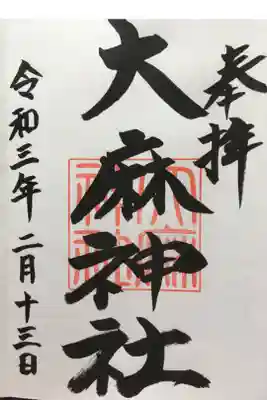 奉拝
大麻神社
令和三年二月十三日